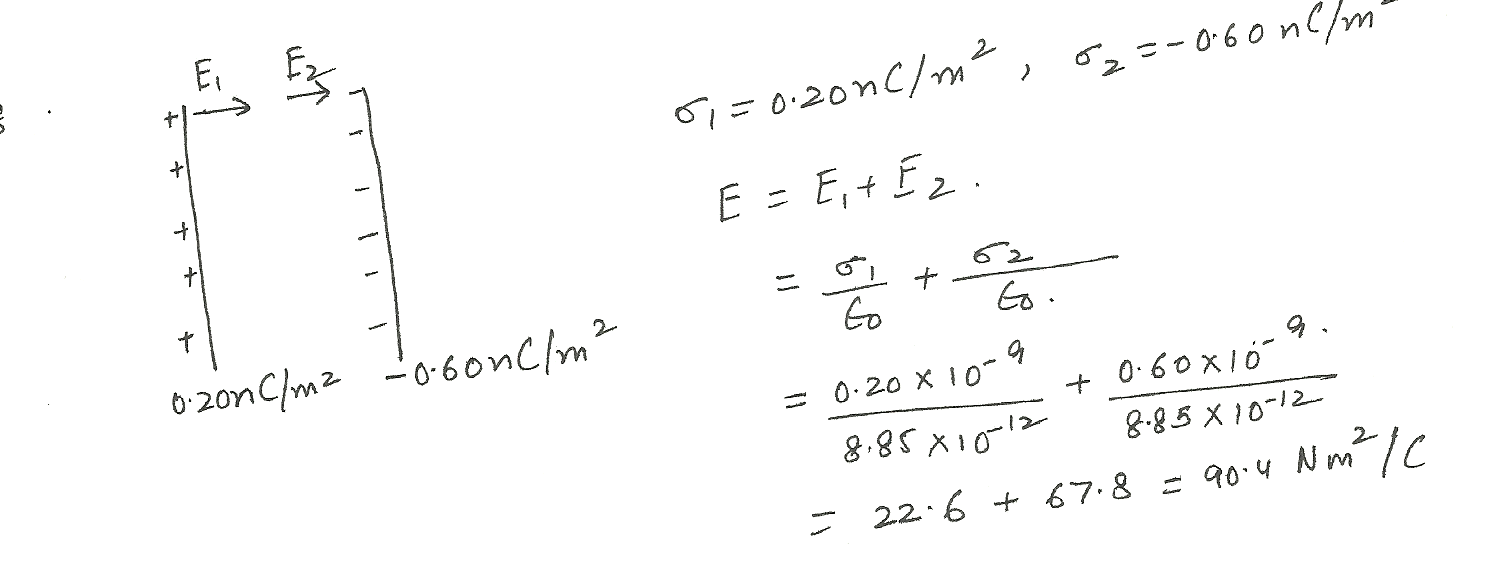 E₁ E₂
+ -
+ -
+ -
+ -
+ -
-
0.20nC/m² -0.60nC/m²
σ₁ = 0.20nC/m², σ₂ = -0.60nC/m²
E = E₁ + E₂.
= σ₁/ε₀ + σ₂/ε₀.
= 0.20 × 10⁻⁹/8.85 × 10⁻¹² + 0.60 × 10⁻⁹./8.85 × 10⁻¹²
= 22.6 + 67.8 = 90.4 Nm²/C